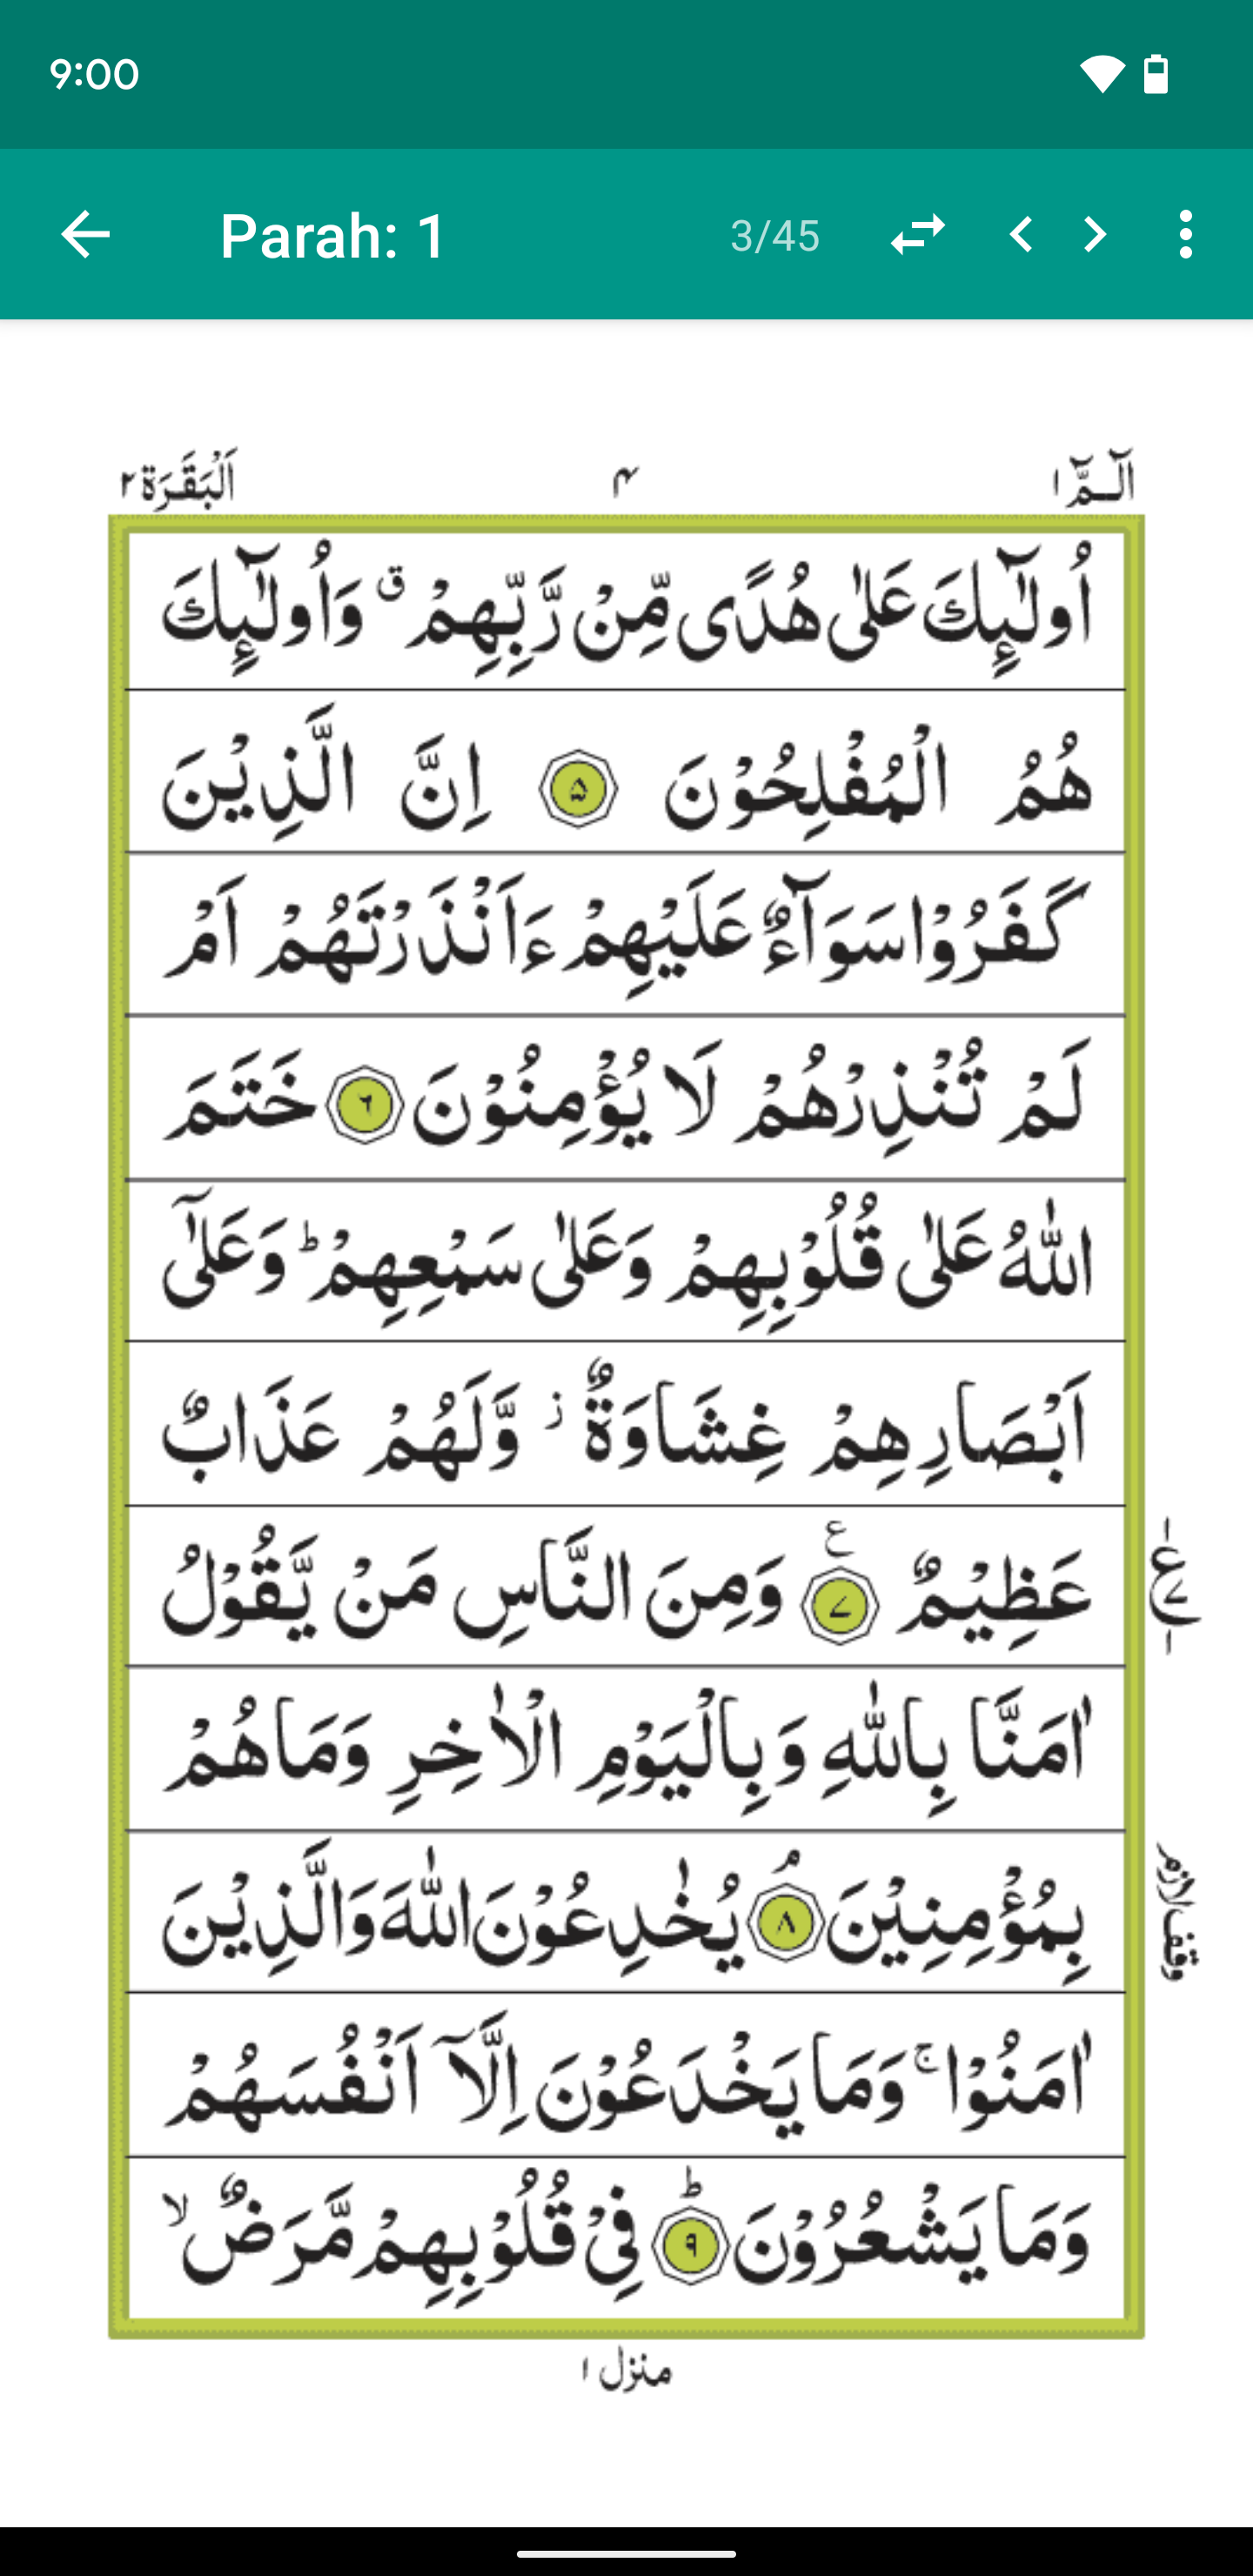 9:00
Parah: 1
3/45
الٓـمّٓ ١
۴
اَلْبَقَرَة ٢
اُولٰٓئِكَ عَلٰى هُدًى مِّنْ رَّبِّهِمْ ۗ وَاُولٰٓئِكَ
هُمُ الْمُفْلِحُوْنَ ۵ اِنَّ الَّذِيْنَ
كَفَرُوْا سَوَآءٌ عَلَيْهِمْ ءَاَنْذَرْتَهُمْ اَمْ
لَمْ تُنْذِرْهُمْ لَا يُؤْمِنُوْنَ ٦ خَتَمَ
اللّٰهُ عَلٰى قُلُوْبِهِمْ وَعَلٰى سَمْعِهِمْ ؕ وَعَلٰٓى
اَبْصَارِهِمْ غِشَاوَةٌ ز وَّلَهُمْ عَذَابٌ
عَظِيْمٌ ٧ ع وَمِنَ النَّاسِ مَنْ يَّقُوْلُ
ع
اٰمَنَّا بِاللّٰهِ وَبِالْيَوْمِ الْاٰخِرِ وَمَا هُمْ
بِمُؤْمِنِيْنَ ٨ ۘ يُخٰدِعُوْنَ اللّٰهَ وَالَّذِيْنَ
وقف لازم
اٰمَنُوْا ۚ وَمَا يَخْدَعُوْنَ اِلَّآ اَنْفُسَهُمْ
وَمَا يَشْعُرُوْنَ ٩ ؕ فِيْ قُلُوْبِهِمْ مَّرَضٌ ۙ
منزل ١